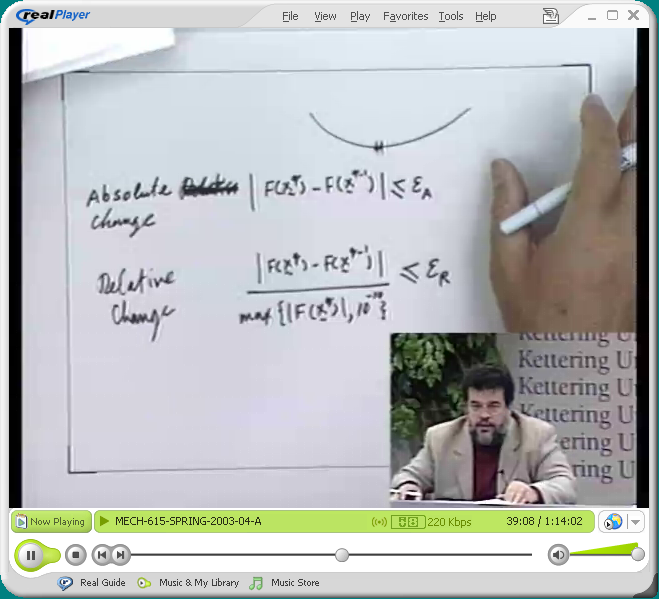 real Player
File View Play Favorites Tools Help
Absolute | F(x^q) - F(x^q-1) | ≤ ε_A
Change
Relative | F(x^q) - F(x^q-1) | ≤ ε_R
Change max { |F(x^q)|, 10^-10 }
Kettering Un
Kettering U
Kettering U
Kettering U
ering U
ring U
Now Playing MECH-615-SPRING-2003-04-A 220 Kbps 39:08 / 1:14:02
Real Guide Music & My Library Music Store